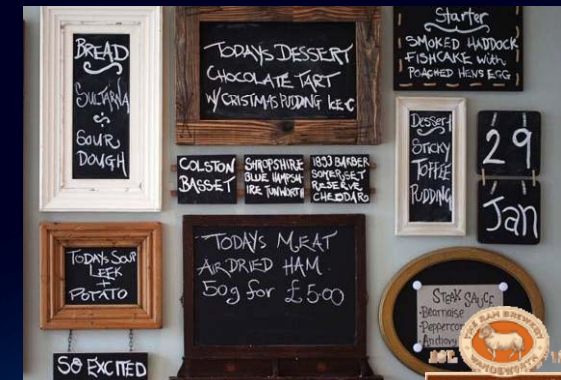 BREAD
SULTANA
&
SOUR
DOUGH
TODAYS DESSERT
CHOCOLATE TART
W/ CRISTMAS PUDDING ICE C
Starter
SMOKED HADDOCK
FISHCAKE with
POACHED HENS EGG
COLSTON
BASSET
SHROPSHIRE
BLUE HAMPSH-
IRE TUNWORTH
1833 BARBER
SOMERSET
RESERVE
CHEDDAR
Dessert
STICKY
TOFFEE
PUDDING
29
Jan
TODAYS SOUP
LEEK
+
POTATO
TODAYS MEAT
AIRDRIED HAM
50g for £5.00
STEAK SAUCE
-Bearnaise
-Peppercor
-Anchovy
SO EXCITED
THE RAM BREWERY
WANDSWORTH
EST.